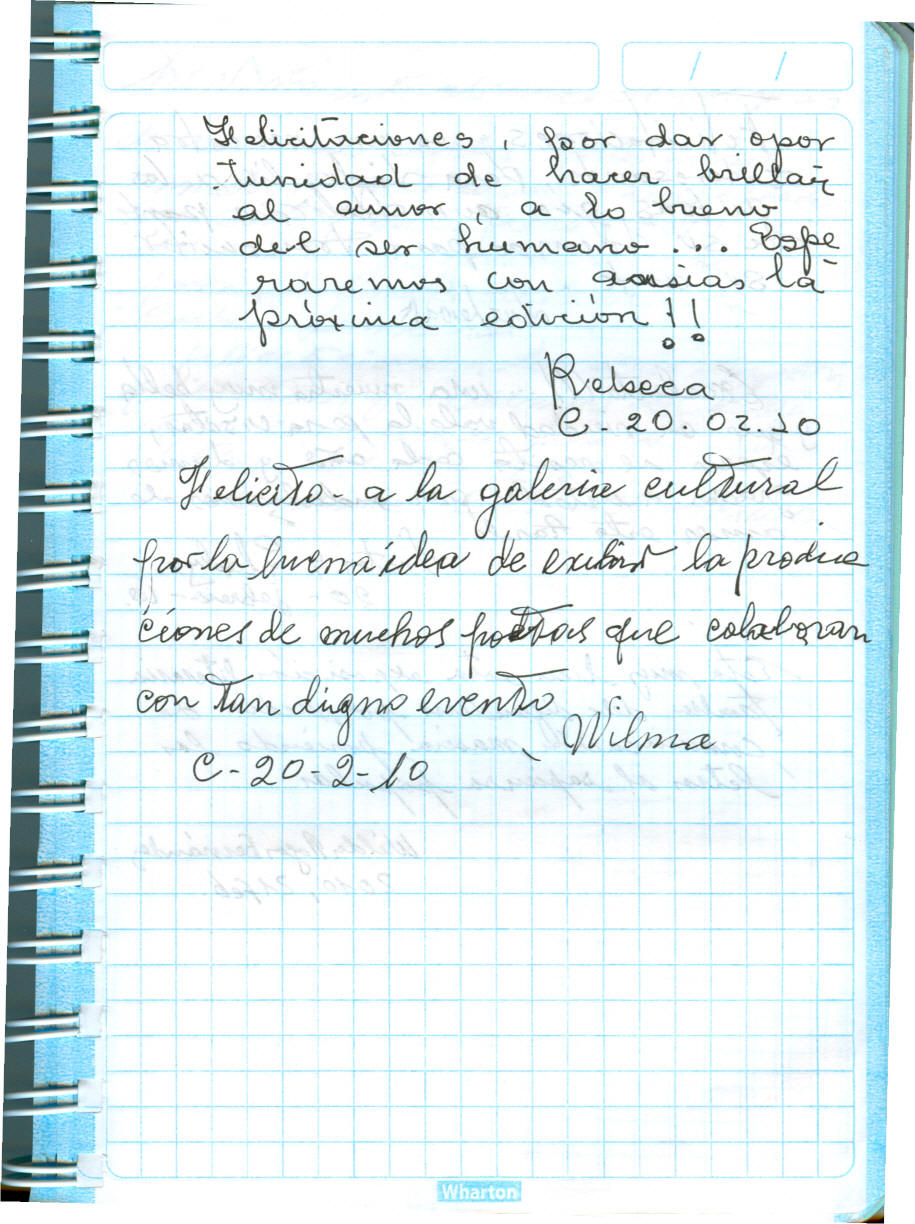 / /
Felicitaciones, por dar opor
tunidad de hacer brillar
al amor, a lo bueno
del ser humano... Espe
raremos con ansias la
próxima edición!!
Rebeca
C-20.02.10
Felicito- a la galeria cultural
por la buena idea de la produc
ciones de muchos poetas que colaboran
con tan digno evento
Wilma
C-20-2-10
Wharton